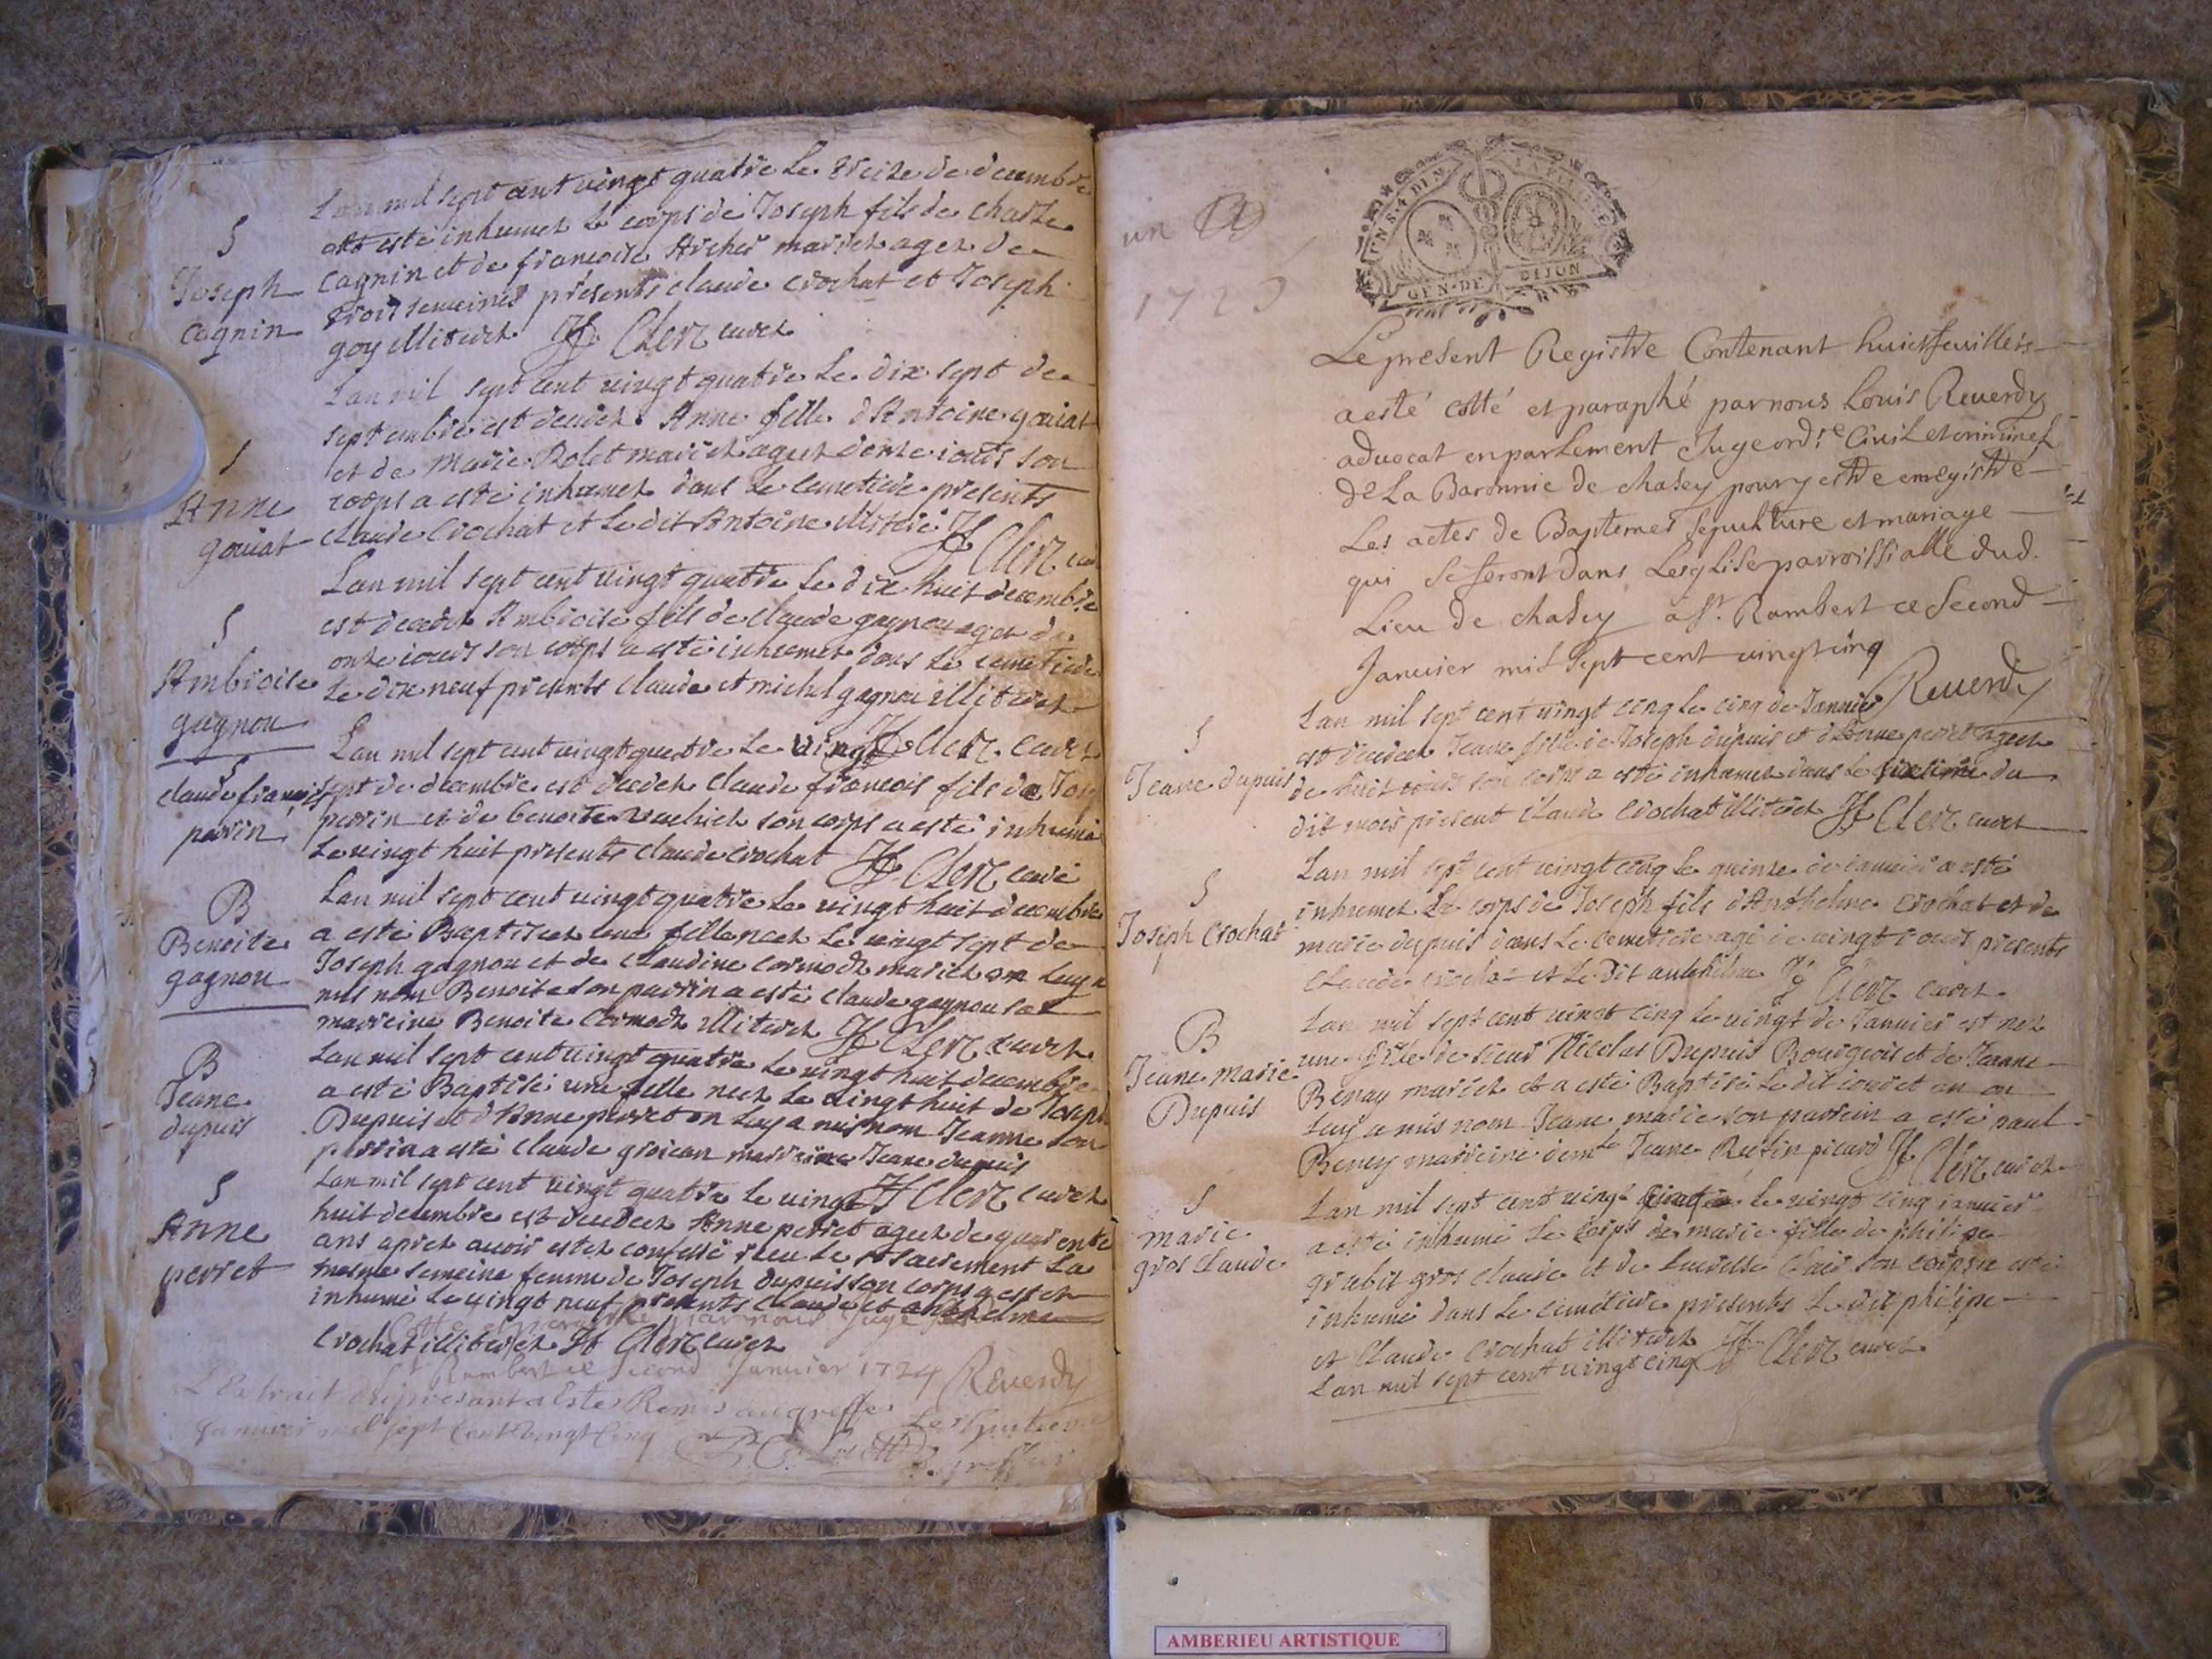 Lan mil sept cent vingt quatre le treize de decembre
a esté inhumez le corps de Joseph fils de charle
S
Joseph
cagnin
cagnin et de francoise Archer mariez agez de
trois semeines presents claude crochat et Joseph
goy illiterez Clerz curez
Lan mil sept cent vingt quatre le dix sept de
sept embre est decedez Anne fille d Antoine gouiat
S
Anne
gouiat
et de Marie Rolet mariez agez donze iours son
corps a esté inhumez dans le cemetiere presents
claude Crochat et le dit Antoine illiteré Clerz
Lan mil sept cent vingt quatre le dix huit decembre
S
Ambroise
gagnou
est decedez Ambroise fils de claude gagnou agez de
onze iours son corps a esté inhumez dans le cemetiere
le dix neuf presents claude et michel gagnou illiterez
Clerz Curez
Lan mil sept cent vingt quatre le vingt
S
claude francois
perrin
sept de decembre est decedez claude francois fils de
perrin et de benoite son corps a esté inhumé
le vingt huit presents claude crochat Clerz curé
B
Benoite
gagnou
Lan mil sept cent vingt quatre le vingt huit decembre
a esté Baptisez une fille neez le vingt sept de
Joseph gagnou et de claudine cormodz mariez on luy a
mis nom Benoite son parrin a esté claude gagnou sa
marreine Benoite Cormodz illiterez Clerz curez
B
Jeane
dupuis
Lan mil sept cent vingt quatre le vingt huit decembre
a esté Baptisé une fille neez le vingt huit de Joseph
Dupuis et d Anne perret on luy a mis nom Jeanne son
parrin a esté claude groscan marreine Jeane dupuis
Clerz curez
S
Anne
perret
Lan mil sept cent vingt quatre le vingt
huit decembre est decedeez Anne perret ageez de quarente
ans aprez avoir estez confessé receu le st sacrement la
mesme semeine femme de Joseph dupuis son corps a estez
inhumé le vingt neuf presents claude et anthelme
Crochat illiterez Clerz curez
Cotté et paraphé par nous Juge
Rambert ce second Janvier 1724 Reverdy
L Extrait du present a Esté Remis au greffe
Janvier mil sept Cent vingt Cinq
un
1725
GEN DE DIJON
Le present Registre Contenant huict feuillets
a esté cotté et paraphé par nous Louis Reverdy
advocat en parlement Juge ord.re Civil et criminel
de La Baronnie de chasey pour y estre enregistré
Les actes de Baptemes sepulture et mariage
qui se feront dans Lesglise parroissialle dud.
Lieu de chasey a St. Rambert ce second
Janvier mil sept cent vingt cinq
Reverdy
Lan mil sept cent vingt cinq le cinq de Janvier
S
Jeane dupuis
est decedeez Jeane fille de Joseph dupuis et d Anne perret ageez
de huit iours son corps a esté inhumez dans le du
dit mois present Claude Crochat illiterez Clerz curez
Lan mil sept cent vingt cinq le quinze de ianvier a esté
S
Joseph Crochat
inhumez le corps de Joseph fils d Anthelme Crochat et de
marie dupuis dans le cemetiere agé de vingt iours presents
Claude crochat et le dit anthelme Clerz curez
B
Jeane marie
Dupuis
Lan mil sept cent vingt cinq le vingt de Janvier est nez
une fille de sieur Nicolas Dupuis Bourgeois et de Jeanne
Benay mariez et a esté Baptisé le dit iour et an on
luy a mis nom Jeane marie son parrein a esté paul
Beney marreine dem.le Jeane picard Clerz curez
S
marie
gros claude
Lan mil sept cent vingt le vingt cinq ianvier
a esté inhumé le corps de marie fille de philipe
grabit gros claude et de son corps a esté
inhumé dans le cemetiere presents le dit philipe
et Claude Crochat illiterez Clerz curez
Lan mil sept cent vingt cinq
AMBERIEU ARTISTIQUE